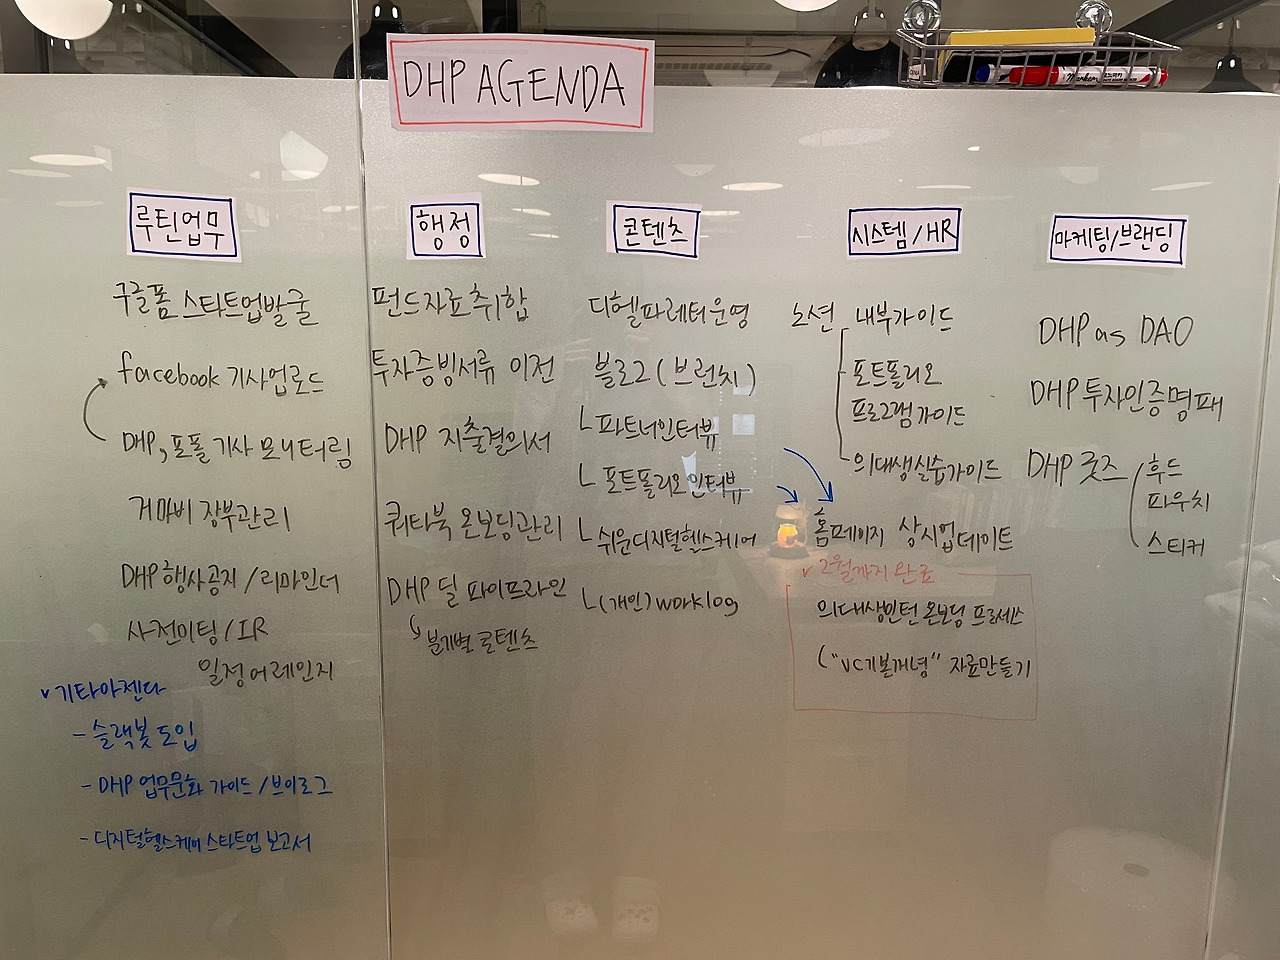 DHP AGENDA
루틴업무
구글폼 스타트업발굴
facebook 기사업로드
DHP, 포폴 기사 모니터링
거마비 장부관리
DHP 행사공지 / 리마인더
사전미팅 / IR
일정어레인지
v 기타아젠다
- 슬랙봇 도입
- DHP 업무문화 가이드 / 브이로그
- 디지털헬스케어 스타트업 보고서
행정
펀드자료취합
투자증빙서류 이전
DHP 지출결의서
쿼타북 온보딩관리
DHP 딜 파이프라인
분기별 콘텐츠
콘텐츠
디헬파레터운영
블로그 (브런치)
ㄴ파트너인터뷰
ㄴ포트폴리오인터뷰
ㄴ쉬운디지털헬스케어
ㄴ(개인) worklog
시스템 / HR
노션 내부가이드
포트폴리오
프로그램가이드
의대생실습가이드
홈페이지 상시업데이트
v 2월까지 완료
의대생인턴 온보딩 프로세스
("VC기본개념" 자료만들기
마케팅/브랜딩
DHP as DAO
DHP 투자인증명패
DHP 굿즈 후드
파우치
스티커
Marker